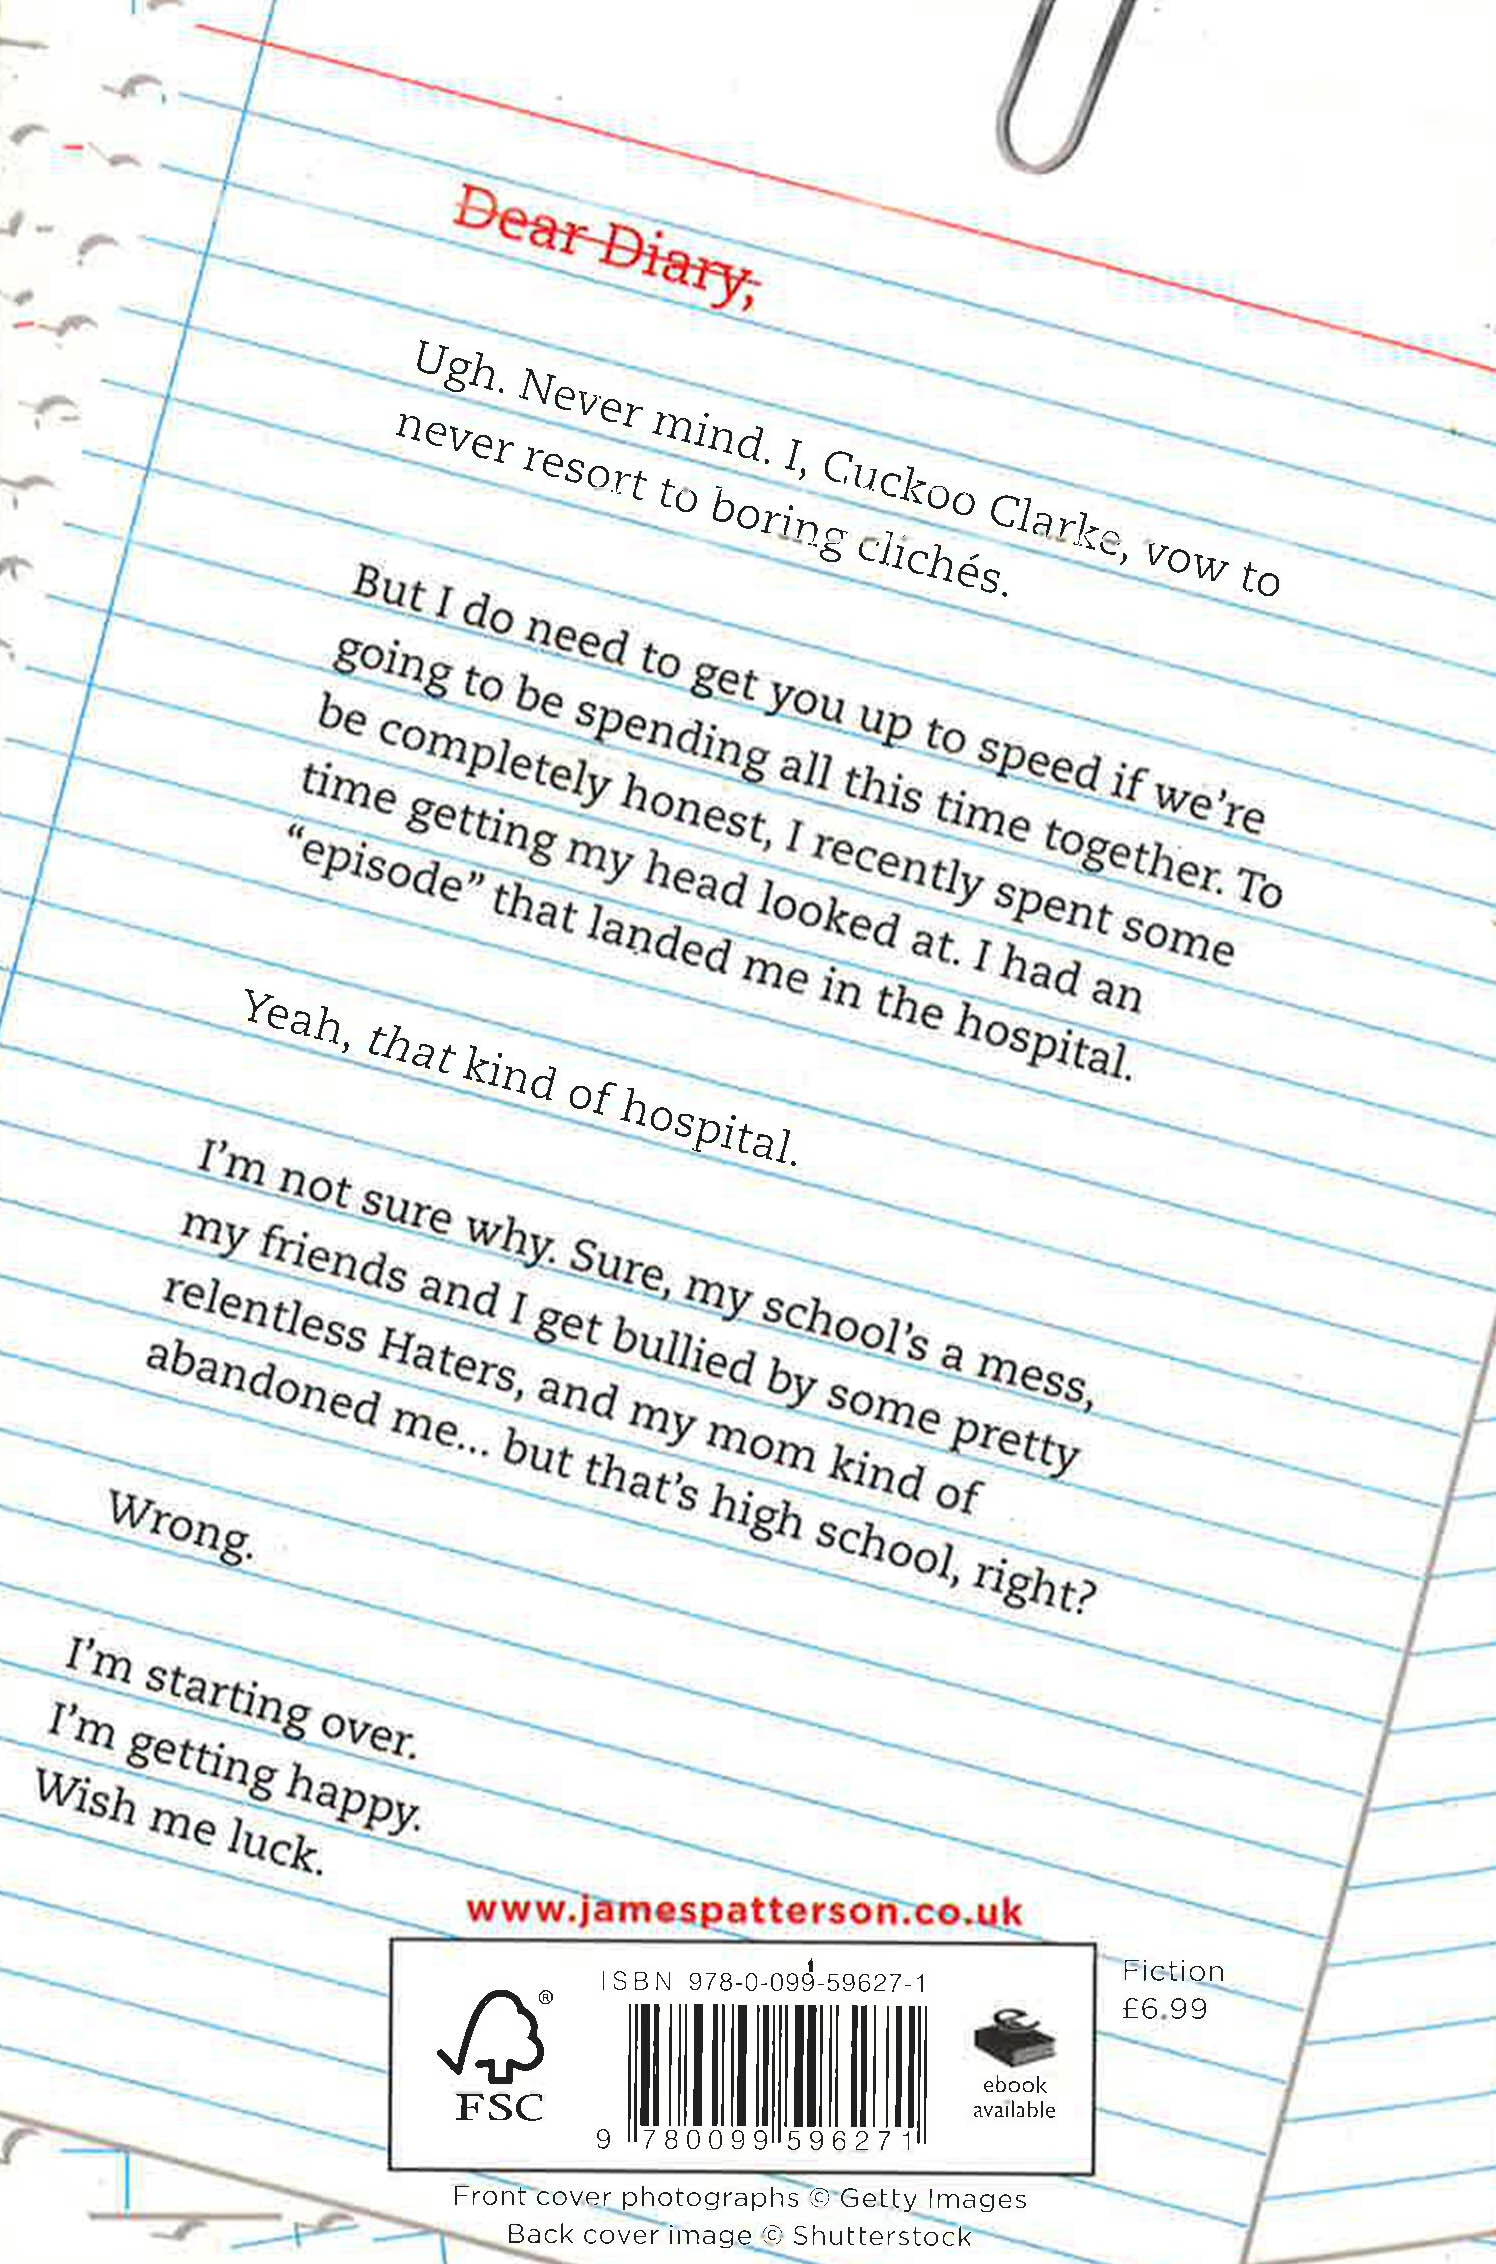 Dear Diary,
Ugh. Never mind. I, Cuckoo Clarke, vow to
never resort to boring clichés.
But I do need to get you up to speed if we’re
going to be spending all this time together. To
be completely honest, I recently spent some
time getting my head looked at. I had an
“episode” that landed me in the hospital.
Yeah, that kind of hospital.
I’m not sure why. Sure, my school’s a mess,
my friends and I get bullied by some pretty
relentless Haters, and my mom kind of
abandoned me... but that’s high school, right?
Wrong.
I’m starting over.
I’m getting happy.
Wish me luck.
www.jamespatterson.co.uk
ISBN 978-0-099-59627-1
9 780099 596271
® FSC
ebook
available
Fiction
£6.99
Front cover photographs © Getty Images
Back cover image © Shutterstock